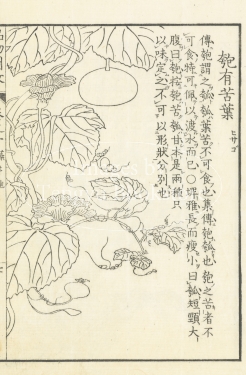 匏有苦葉
ヒサゴ
傳匏謂之瓠瓠葉苦不可食也集傳匏瓠也匏之苦者不
可食特可佩以渡水而已○埤雅長而瘦小曰瓠短頸大
腹曰匏按匏苦瓠甘本是兩種只
以味定之不可以形狀分別也